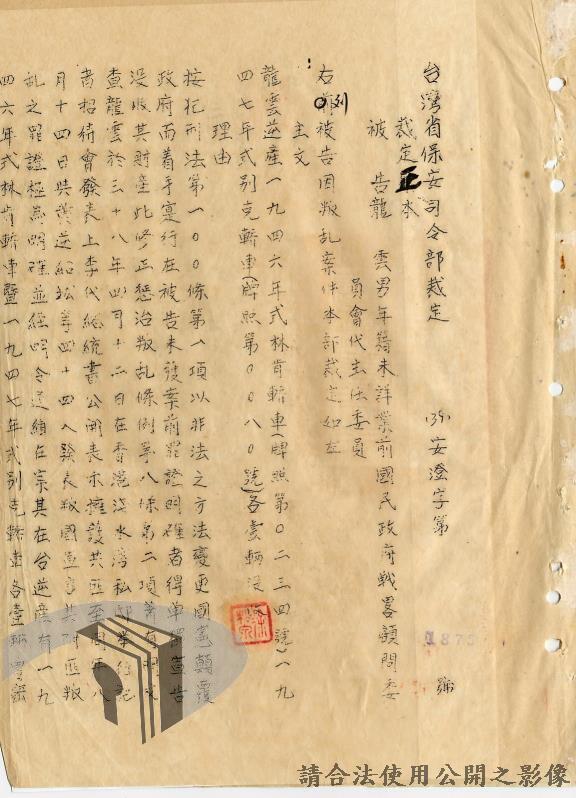 台灣省保安司令部裁定　(39)安澄字第1873號
裁定正本
被告龍雲男年籍未詳業前國民政府戰畧顧問委
員會代主任委員
右列被告因叛乱案件本部裁定如左
主文
龍雲逆產一九四六年式林肯轎車(牌照第０二三四號)一九
四七年式別克轎車(牌照第００八０號)各壹輛沒收
理由
按犯刑法第一００條第一項以非法之方法變更國憲顛覆
政府而着手實行在被告未獲案前罪證明確者得單獨宣告
沒收其財產此修正懲治叛乱條例第八條第二項著有明文
查龍雲於三十八年四月十二日在香港淺水灣私邸舉行記
者招待會發表上李代總統書公開表示擁護共匪至同年八
月十四日與黃逆紹竑等四十四人發表叛國宣言其附匪叛
乱之罪證極為明確並經明令通緝在案其在台逆產有一九
四六年式林肯轎車暨一九四七年式別克轎車各壹輛
請合法使用公開之影像